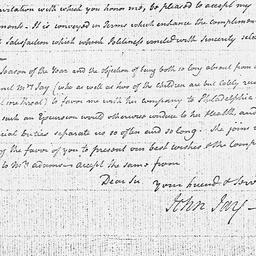 invitation with which you honor me, be pleased to accept my
ments. It is conveyed in Terms which enhance the complimen
Satisfaction which Politeness united with sincerity seld
Season of the Year and the objection of being both so long absent from
Mrs Jay (who as well as two of the children are but lately reco
throat) to favor me with her company to Philadelphia
such an Excursion would otherwise conduce to her Health, and
cial Duties separate us so often and so long. She joins
the favor of you to present our best wishes & the comp
to Mrs Adams accept the same from
Dear Sir your friend & Serv
John Jay